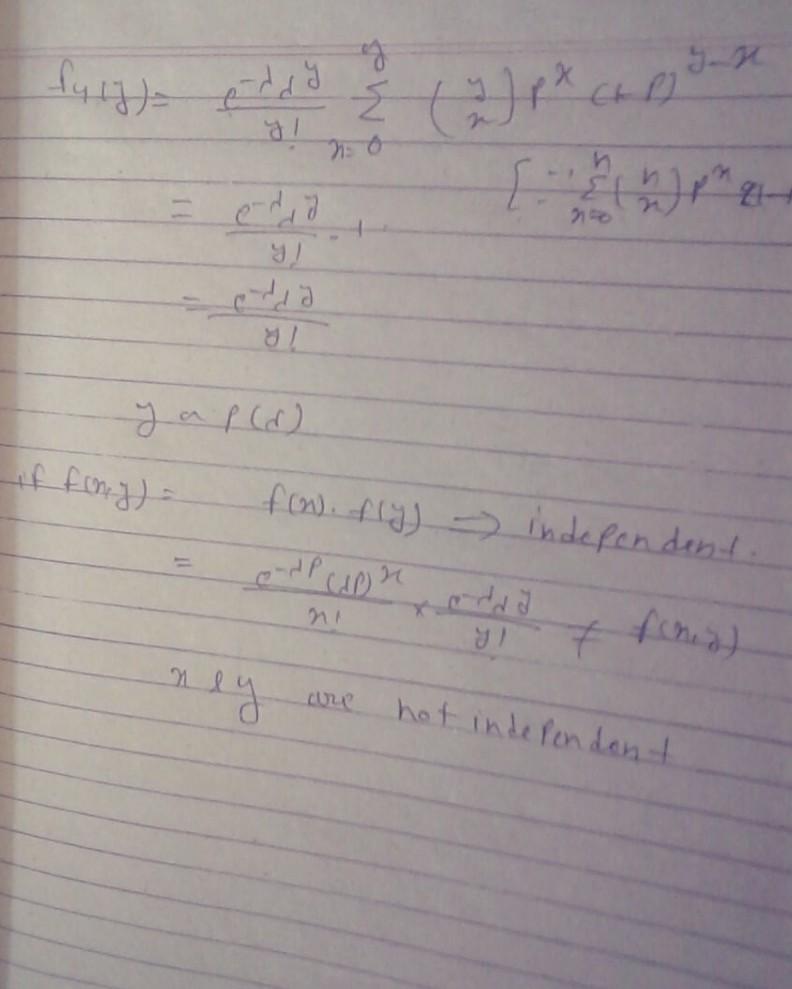 f_Y(y) = e^{-λ} λ^y / y! Σ_{x=0}^{y} (y x) p^x (1-p)^{y-x}
[∵ Σ_{x=0}^{n} (n x) p^x
= e^{-λ} λ^y / y! · 1
= e^{-λ} λ^y / y!
y ~ P(λ)
if f(x,y) = f(x). f(y) ⇒ independent.
= e^{-λp} (λp)^x / x! × e^{-λ} λ^y / y! ≠ f(x,y)
x & y are not independent